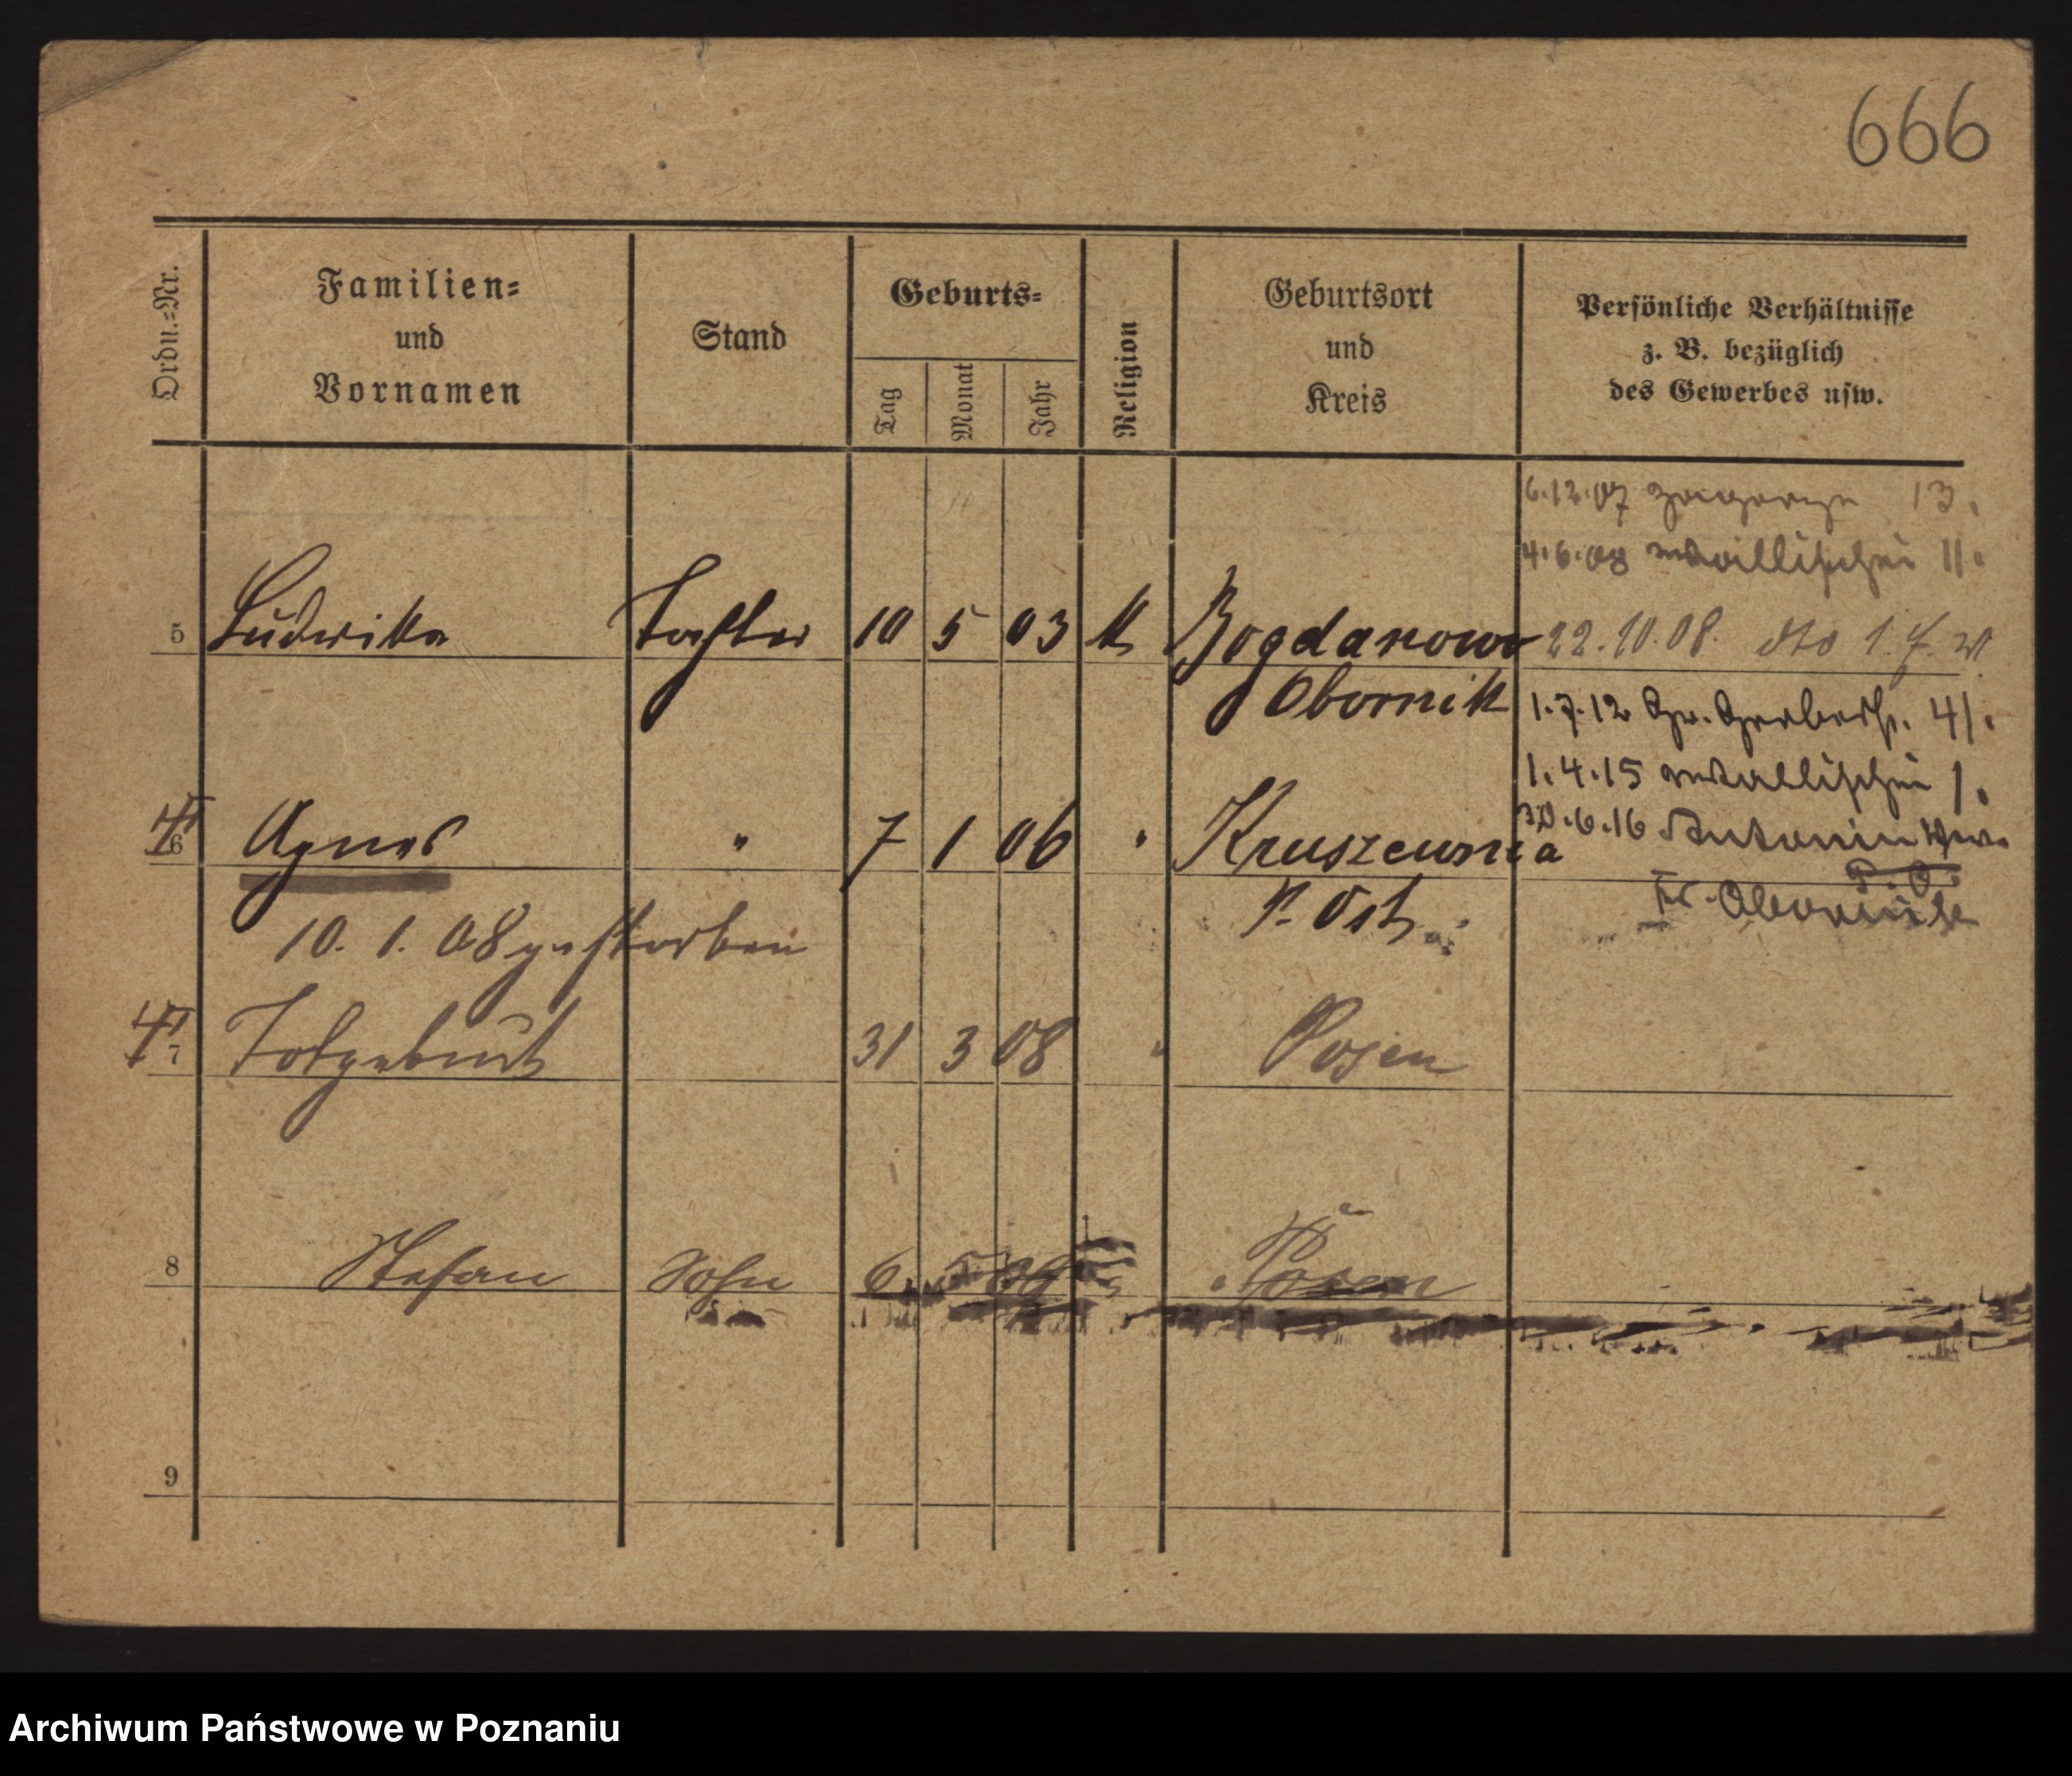 666
Ordn.-Nr.
Familien-
und
Vornamen
Stand
Geburts-
Tag
Monat
Jahr
Religion
Geburtsort
und
Kreis
Persönliche Verhältnisse
z. B. bezüglich
des Gewerbes usw.
6.12.07 13.
4.6.08 Wallischei 11.
5 Ludwika Tochter 10 5 03 K Bogdanowo 22.10.08. dto 1.
Obornik 1.7.12 Gr. Gerberstr. 41.
1.4.15 Wallischei 1.
6 Agnes " 7 1 06 " Kruszewnia 30.6.16 Antonin
P. Ost
Kr. Obornik
10. 1. 08 gestorben
7 Totgeburt 31 3 08 " Posen
8 Stefan Sohn 6. 5 09 Posen
9
Archiwum Państwowe w Poznaniu